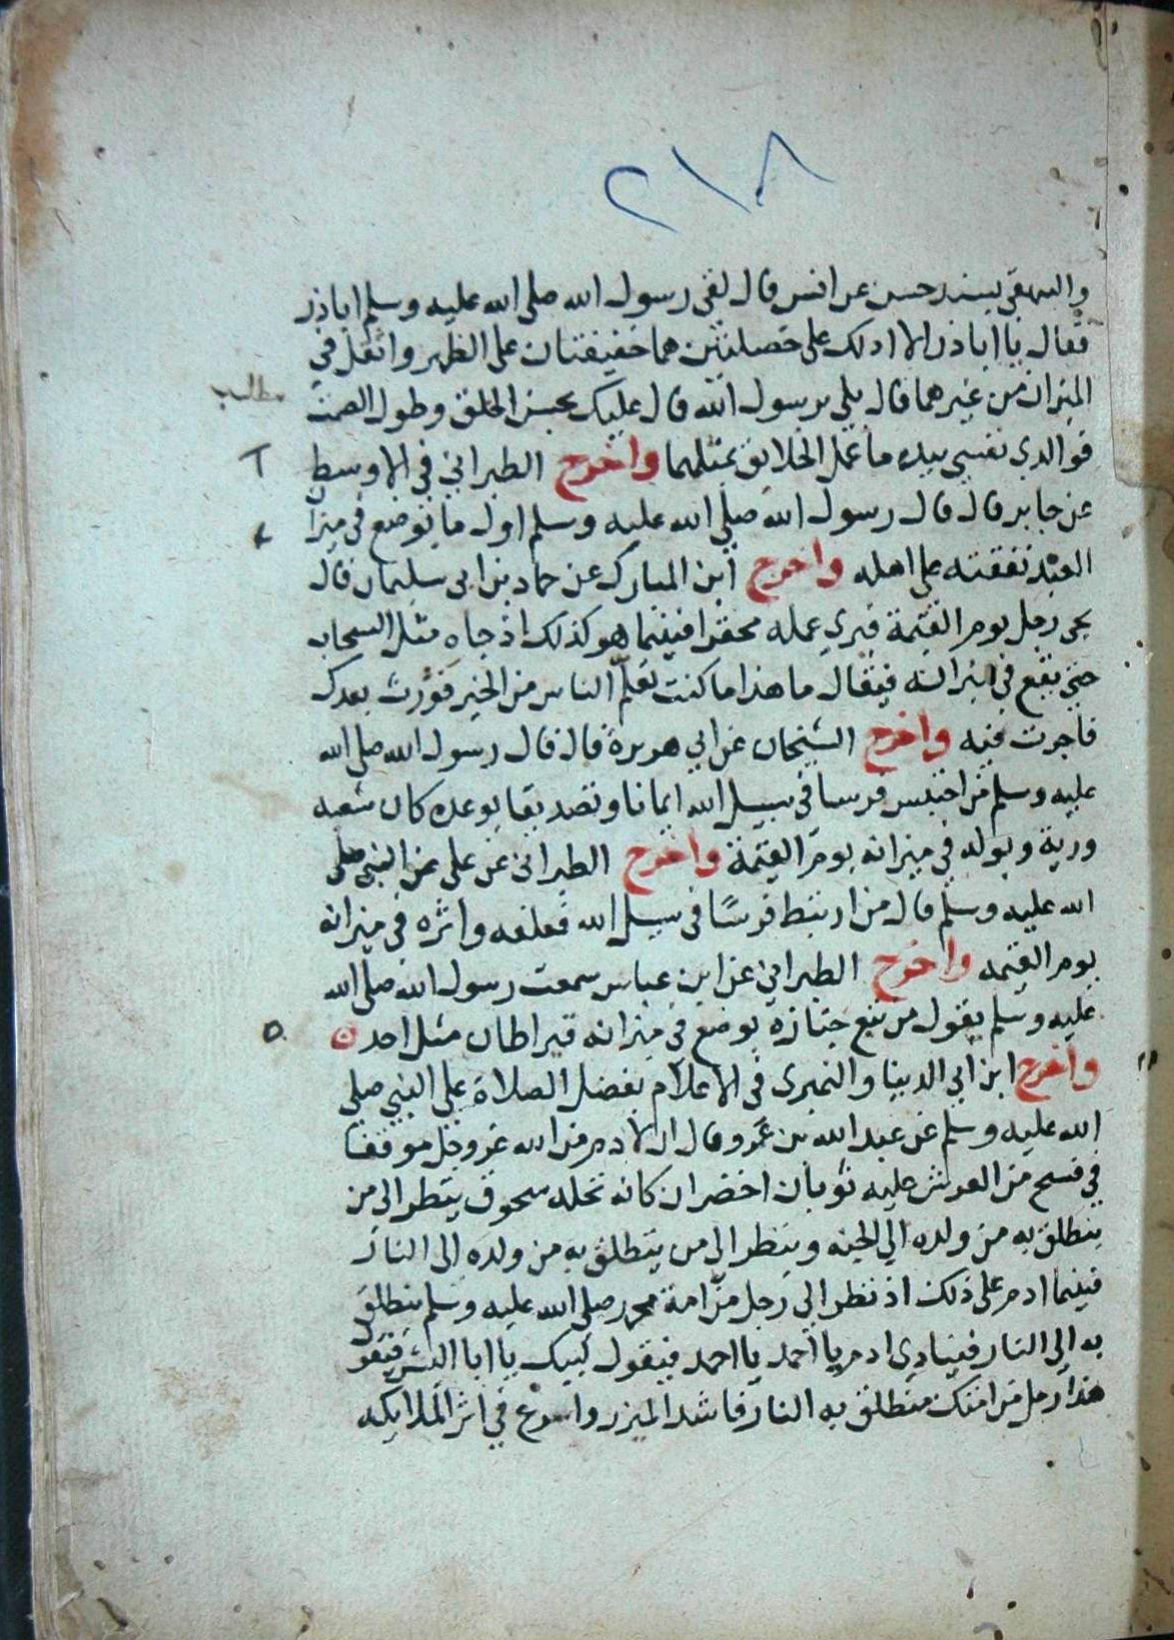 ٢١٨
والبيهقي بسند حسن عن انس قال لقى رسول الله صلى الله عليه وسلم اباذر
فقال يا اباذر الا ادلك على خصلتين هما خفيفتان على الظهر واثقل في
الميزان من غيرهما قال بلى يرسول الله قال عليك بحسن الخلق وطول الصمت
مطالب
فوالدي نفسي بيده ما عمل الخلايق بمثلهما واخرج الطبراني في الاوسط
عن جابر قال قال رسول الله صلى الله عليه وسلم اول ما يوضع في ميزا
العبد نفقته على اهله واخرج ابن المبارك عن حماد بن ابي سليمان قال
يجى رجل يوم القيمة فيري عمله محقرا فبينما هو كذلك اذ جاه مثل السحاب
حتي يقع في ميزانه فيقال ما هذا ما كنت تعلم الناس من الخير فورث بعدك
فاجرت فيه واخرج الشيخان عن ابي هريرة قال قال رسول الله صلى الله
عليه وسلم من احتبس فرسا في سبيل الله ايمانا وتصديقا بوعده كان شعبه
وريه وبوله في ميزانه يوم القيمة واخرج الطبراني عن على عن النبي صلى
الله عليه وسلم قال من ارتبط فرسًا في سبيل الله فعلفه واثره في ميزانه
يوم القيمه واخرج الطبراني عن ابن عباس سمعت رسول الله صلى الله
عليه وسلم يقول من تبع جنازه يوضع في ميزانه قيراطان مثل احد
واخرج ابن ابي الدينا والنميرى في الاعلام بفضل الصلاة على النبي صلى
الله عليه وسلم عن عبد الله بن عمرو قال ان لادم من الله عز وجل موقفا
في فسح من العرش عليه ثوبان اخضران كانه نخله سحوق ينظر الى من
ينطلق به من ولده الي الجنه وينظر الى من ينطلق به من ولده الى النار
فبينما ادم على ذلك اذ نظر الى رجل من امة محمد صلى الله عليه وسلم منطلق
به الى النار فينادي ادم يا احمد يا احمد فيقول لبيك يا ابا البشر فيقول
هذا رجل من امتك منطلق به النار فاشد الميزر واسرع في اثر الملايكه